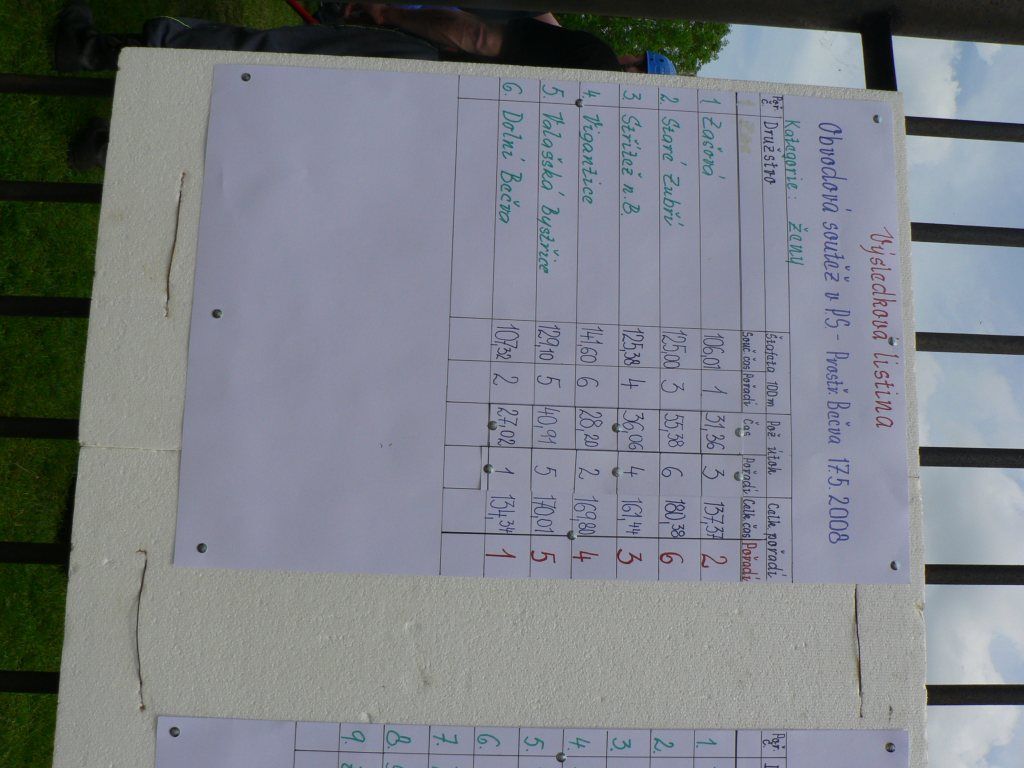 Výsledková listina
Obvodová soutěž v PS - Prostř. Bečva 17.5.2008
Kategorie: ženy
Poř. č. Družstvo Štafeta 100m Pož. útok Celk. pořadí
Souč. čas Pořadí Čas Pořadí Celk. čas Pořadí
1 Zašová 106,01 1 31,36 3 137,37 2
2 Staré Zubří 125,00 3 55,38 6 180,38 6
3. Střítež n. B. 125,38 4 36,06 4 161,44 3
4. Vigantice 141,60 6 28,20 2 169,80 4
5. Valašská Bystřice 129,10 5 40,91 5 170,01 5
6. Dolní Bečva 107,32 2 27,02 1 134,34 1
Poř. č.
1.
2.
3.
4.
5.
6.
7.
8.
9.